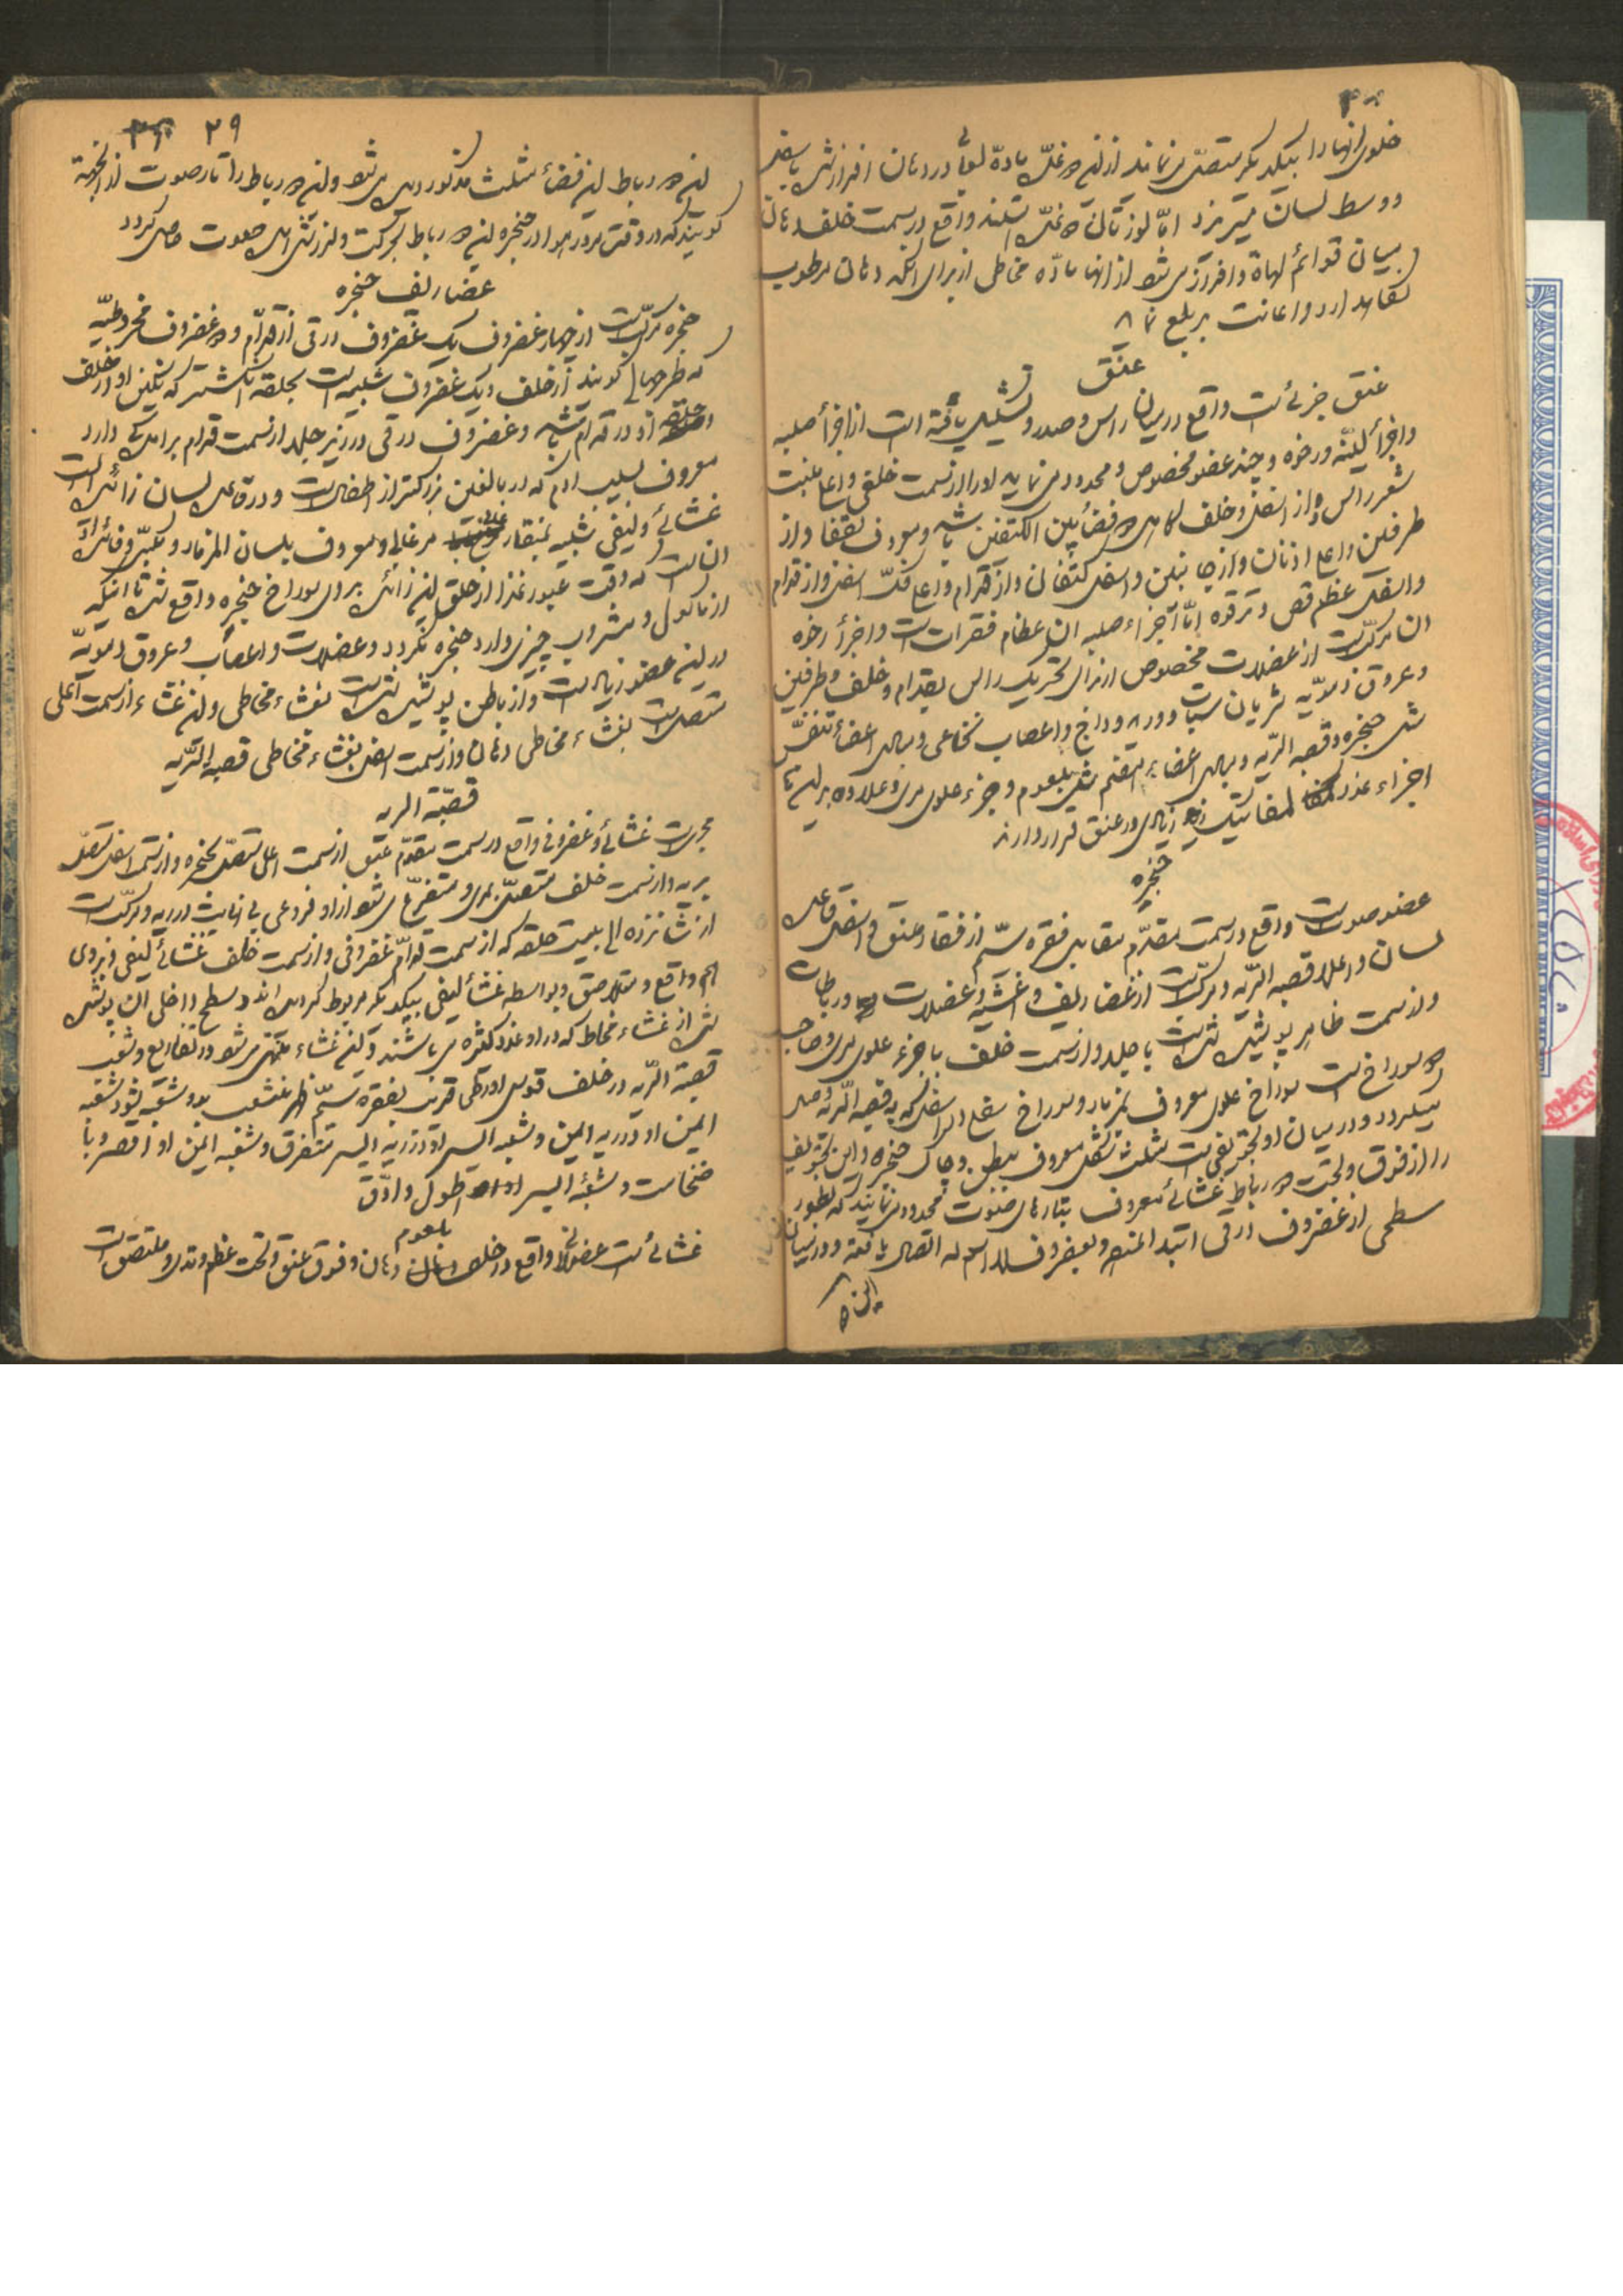 خلوی انها را بیکدیگر متصل می نماید از این دو غده ماده لعابی در دهان افراز شده باسفل
و وسط لسان میریزد اما لوزتان دو غده هستند واقع در سمت خلف دهان
میان قوائم لهاة و افراز می شود از انها ماده مخاطی از برای انکه دهان مرطوب
نگاه دارد و اعانت بر بلع نماید
عنق
عنق جزئی است واقع در میان راس و صدر و تشکیل یافته است از اجزأ صلبه
و اجزأ لینه و رخوه و چند عضو مخصوص و محدود می نماید او را از سمت خلفی و اعلی منبت
شعر راس و از اسفل و خلف فضأ بین الکتفین باشد و معروف بقفا و از
طرفین و اعلی اذنان و از جانبین و اسفل کتفان و از قدام و اعلی فک اسفل و از قدام
و اسفل عظم قص و ترقوه اما اجزاء صلبه ان عظام فقرات است و اجزأ رخوه
ان مرکب است از عضلات مخصوص از برای تحریک راس بقدام و خلف و طرفین
و عروق دمویه شریان سبات و وداج و اعصاب نخاعی و برای اعضأ تنفس
مثل حنجره و قصبه الریه و برای اعضاء هضم مثل بلعوم و جزء علوی مری و علاوه بر این ها
اجزاء غدد لمفاتیک زیادی در عنق قرار دارند
حنجره
عضو صوت است واقع در سمت مقدم مقابل فقره سیم از فقار عنق و اسفل قاعده
لسان و اعلای قصبه الریه و مرکب است از غضاریف و اغشیه و عضلات و رباطات
و از سمت ظاهر پوشیده شده است با جلد و از سمت خلف با جزء علوی مری و صاحب
دو سوراخ است سوراخ علوی معروف بمزمار و سوراخ اسفل که به قصبه الریه وصل
میگردد و در میان او تجویفی است مثلث شکل معروف ببطن و چاک حنجره و این تجویف
را از فوق و تحت دو رباط غشائی معروف بتارهای صوت محدود می نمایند که بطور
سطحی از غضروف درقی ابتدا نموده بغضروف اتصال یافته و در میان
این دو
۲۹
این دو رباط این فضأ مثلث مذکور دیده می شود و این دو رباط را تار صوت از انجهة
گویند که در وقت مرور هوا در حنجره این دو رباط بحرکت و لرزش امده صوت حاصل گردد
غضاریف حنجره
حنجره مرکب است از چهار غضروف یک غضروف درقی از قدام و دو غضروف مخروطیه
که طرجهالی گویند از خلف و یک غضروف شبیه است بحلقه انگشتر که نگین او از خلف
و حلقه او در قدام باشد و غضروف درقی در زیر جلد از سمت قدام برامدگی دارد
معروف بسیب ادم که در بالغین بزرکتر از اطفال است و در قاعده لسان زائده ایست
غشائی و لیفی شبیه بمنقار مرغابی و معروف بلسان المزمار و مکبی و فائده
ان انست که وقت عبور غذا از حلق این زائده بروی سوراخ حنجره واقع شده تا انکه
از ماکول و مشروب چیزی وارد حنجره نگردد و عضلات و اعصاب و عروق دمویه
در این عضو زیاد است و از باطن پوشیده شده است بغشاء مخاطی و این غشاء از سمت اعلی
متصل است بغشاء مخاطی دهان و از سمت اسفل بغشاء مخاطی قصبه الریه
قصبة الریه
مجری است غشائی و غضروفی واقع در سمت مقدم عنق از سمت اعلی متصل بحنجره و از سمت اسفل متصل
بریه و از سمت خلف متصل بمری و متفرع می شود از او فروعی بی نهایت در ریه و مرکب است
از شانزده الی بیست حلقه که از سمت قدام غضروفی و از سمت خلف غشائی لیفی و بروی
هم واقع و متلاصق و بواسطه غشأ لیفی بیکدیگر مربوط گردیده اند و سطح داخلی ان پوشیده
شده از غشاء مخاط که در او غدد کثیره می باشند و این غشاء منتهی می شود در تفاریع و شعب
قصبة الریه در خلف قوس اورطی قریب بفقره سیم ظهر منشعب بدو شعبه شود شعبه
ایمن او در ریه ایمن و شعبه ایسر او در ریه ایسر متفرق و شعبه ایمن او اقصر و با
ضخامت و شعبه ایسر او اطول و ادق
بلعوم
غشائی است عضلانی واقع در خلف دهان و فوق عنق و تحت عظم وتدی و ملتصق است